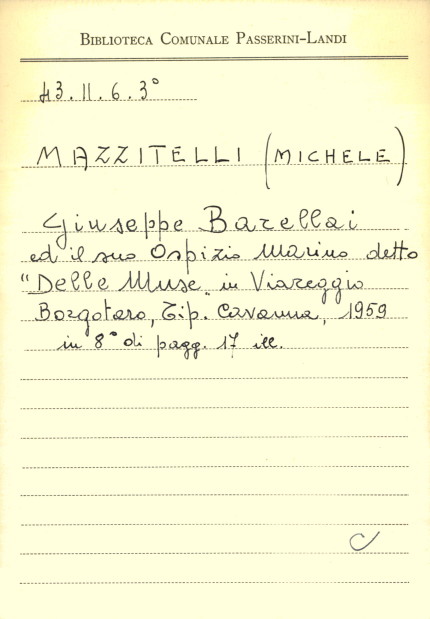 BIBLIOTECA COMUNALE PASSERINI-LANDI
43.II.6.3°
MAZZITELLI (MICHELE)
Giuseppe Barellai
ed il suo Ospizio Marino detto
"Delle Muse" in Viareggio
Borgotaro, Tip. Cavanna, 1959
in 8° di pagg. 17 ill.
C